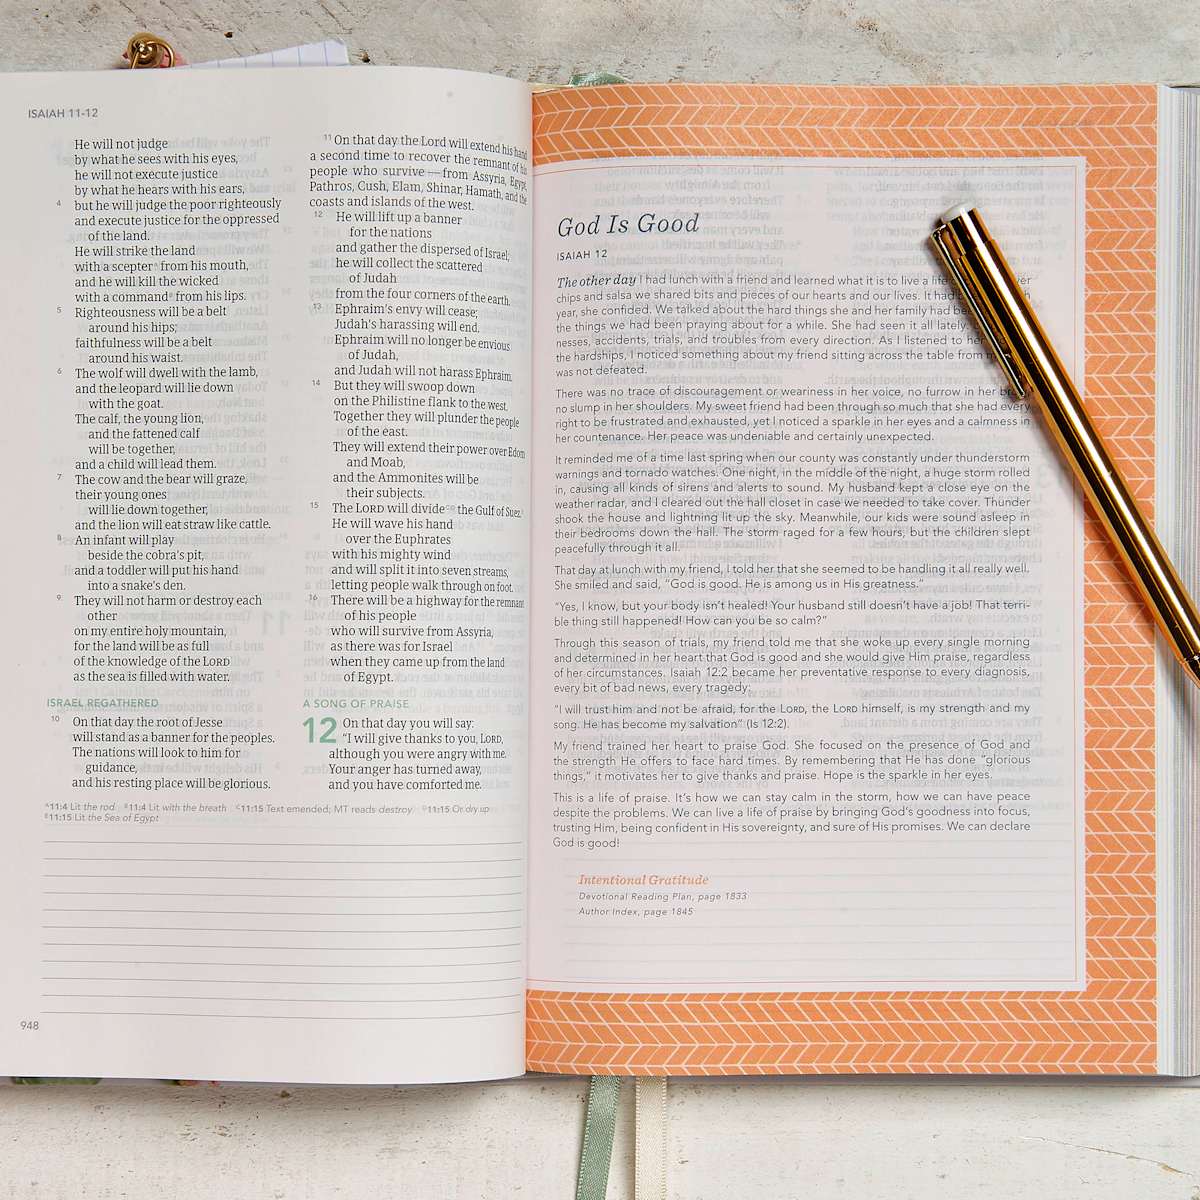 ISAIAH 11-12
He will not judge
by what he sees with his eyes,
he will not execute justice
by what he hears with his ears,
4 but he will judge the poor righteously
and execute justice for the oppressed
of the land.
He will strike the land
with a scepter from his mouth,
and he will kill the wicked
with a command from his lips.
5 Righteousness will be a belt
around his hips;
faithfulness will be a belt
around his waist.
6 The wolf will dwell with the lamb,
and the leopard will lie down
with the goat.
The calf, the young lion,
and the fattened calf
will be together,
and a child will lead them.
7 The cow and the bear will graze,
their young ones
will lie down together,
and the lion will eat straw like cattle.
8 An infant will play
beside the cobra's pit,
and a toddler will put his hand
into a snake's den.
9 They will not harm or destroy each
other
on my entire holy mountain,
for the land will be as full
of the knowledge of the LORD
as the sea is filled with water.
ISRAEL REGATHERED
10 On that day the root of Jesse
will stand as a banner for the peoples.
The nations will look to him for
guidance,
and his resting place will be glorious.
11 On that day the Lord will extend his hand
a second time to recover the remnant of his
people who survive — from Assyria, Egypt,
Pathros, Cush, Elam, Shinar, Hamath, and the
coasts and islands of the west.
12 He will lift up a banner
for the nations
and gather the dispersed of Israel;
he will collect the scattered
of Judah
from the four corners of the earth.
13 Ephraim's envy will cease;
Judah's harassing will end.
Ephraim will no longer be envious
of Judah,
and Judah will not harass Ephraim.
14 But they will swoop down
on the Philistine flank to the west.
Together they will plunder the people
of the east.
They will extend their power over Edom
and Moab,
and the Ammonites will be
their subjects.
15 The LORD will divide the Gulf of Suez.
He will wave his hand
over the Euphrates
with his mighty wind
and will split it into seven streams,
letting people walk through on foot.
16 There will be a highway for the remnant
of his people
who will survive from Assyria,
as there was for Israel
when they came up from the land
of Egypt.
A SONG OF PRAISE
12 On that day you will say:
"I will give thanks to you, LORD,
although you were angry with me.
Your anger has turned away,
and you have comforted me.
A11:4 Lit the rod B11:4 Lit with the breath C11:15 Text emended; MT reads destroy D11:15 Or dry up
E11:15 Lit the Sea of Egypt
948
God Is Good
ISAIAH 12
The other day I had lunch with a friend and learned what it is to live a life
chips and salsa we shared bits and pieces of our hearts and our lives. It had
year, she confided. We talked about the hard things she and her family had
the things we had been praying about for a while. She had seen it all lately.
nesses, accidents, trials, and troubles from every direction. As I listened to her
the hardships, I noticed something about my friend sitting across the table from
was not defeated.
There was no trace of discouragement or weariness in her voice, no furrow in her brow,
no slump in her shoulders. My sweet friend had been through so much that she had every
right to be frustrated and exhausted, yet I noticed a sparkle in her eyes and a calmness in
her countenance. Her peace was undeniable and certainly unexpected.
It reminded me of a time last spring when our county was constantly under thunderstorm
warnings and tornado watches. One night, in the middle of the night, a huge storm rolled
in, causing all kinds of sirens and alerts to sound. My husband kept a close eye on the
weather radar, and I cleared out the hall closet in case we needed to take cover. Thunder
shook the house and lightning lit up the sky. Meanwhile, our kids were sound asleep in
their bedrooms down the hall. The storm raged for a few hours, but the children slept
peacefully through it all.
That day at lunch with my friend, I told her that she seemed to be handling it all really well.
She smiled and said, "God is good. He is among us in His greatness."
"Yes, I know, but your body isn't healed! Your husband still doesn't have a job! That terri-
ble thing still happened! How can you be so calm?"
Through this season of trials, my friend told me that she woke up every single morning
and determined in her heart that God is good and she would give Him praise, regardless
of her circumstances. Isaiah 12:2 became her preventative response to every diagnosis,
every bit of bad news, every tragedy:
"I will trust him and not be afraid, for the LORD, the LORD himself, is my strength and my
song. He has become my salvation" (Is 12:2).
My friend trained her heart to praise God. She focused on the presence of God and
the strength He offers to face hard times. By remembering that He has done "glorious
things," it motivates her to give thanks and praise. Hope is the sparkle in her eyes.
This is a life of praise. It's how we can stay calm in the storm, how we can have peace
despite the problems. We can live a life of praise by bringing God's goodness into focus,
trusting Him, being confident in His sovereignty, and sure of His promises. We can declare
God is good!
Intentional Gratitude
Devotional Reading Plan, page 1833
Author Index, page 1845